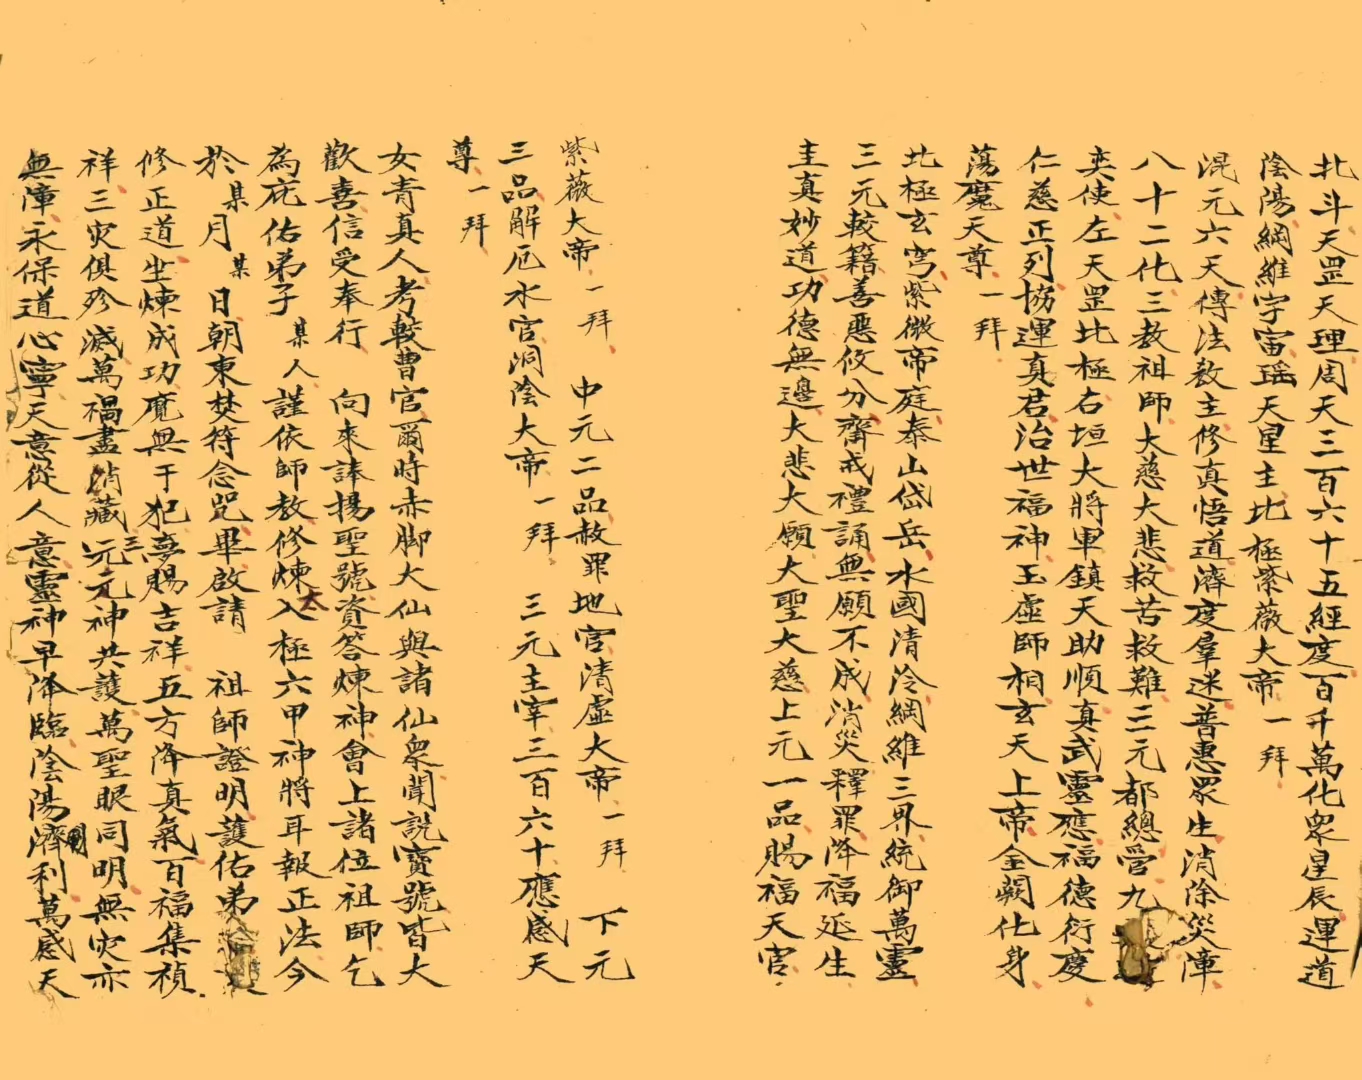 北斗天罡天理周天三百六十五經度百千萬化衆星辰運道
陰陽綱維宇宙瑶天星主北極紫薇大帝一拜
混元六天傳法教主修真悟道濟度羣迷普惠眾生消除災障
八十二化三教祖師大慈大悲救苦救難三元都總管九
奕使左天罡北極右垣大將軍鎮天助順真武靈應福德衍慶
仁慈正列協運真君治世福神玉虛師相玄天上帝金闕化身
蕩魔天尊一拜
北極玄穹紫微帝庭泰山岱岳水國清泠綱維三界統御萬靈
三元較籍善惡攸分齋戒禮誦無願不成消災釋罪降福延生
主真妙道功德無邊大悲大願大聖大慈上元一品賜福天官
紫薇大帝一拜 中元二品赦罪地官清虛大帝一拜 下元
三品解厄水官洞陰大帝一拜 三元主宰三百六十應感天
尊一拜
女青真人考較曹官爾時赤脚大仙與諸仙衆聞說寶號皆大
歡喜信受奉行 向來諱揚聖號資答煉神會上諸位祖師乞
為庇佑弟子某人謹依師教修煉太入極六甲神將耳報正法今
於某月某日朝東焚符念咒畢啟請 祖師證明護佑弟
修正道坐煉成功魔無于犯夢賜吉祥五方降真氣百福集禎
祥三灾俱殄滅萬禍盡消藏三元元神共護萬聖眼同明無灾亦
無障永保道心寧天意從人意靈神早降臨陰陽濟利萬感天